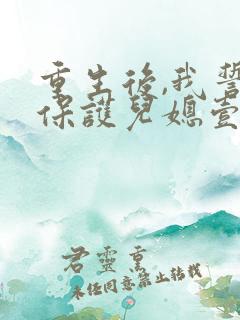 重生後,我誓
保護兒媳壹
君靈熏
未经同意禁止转载